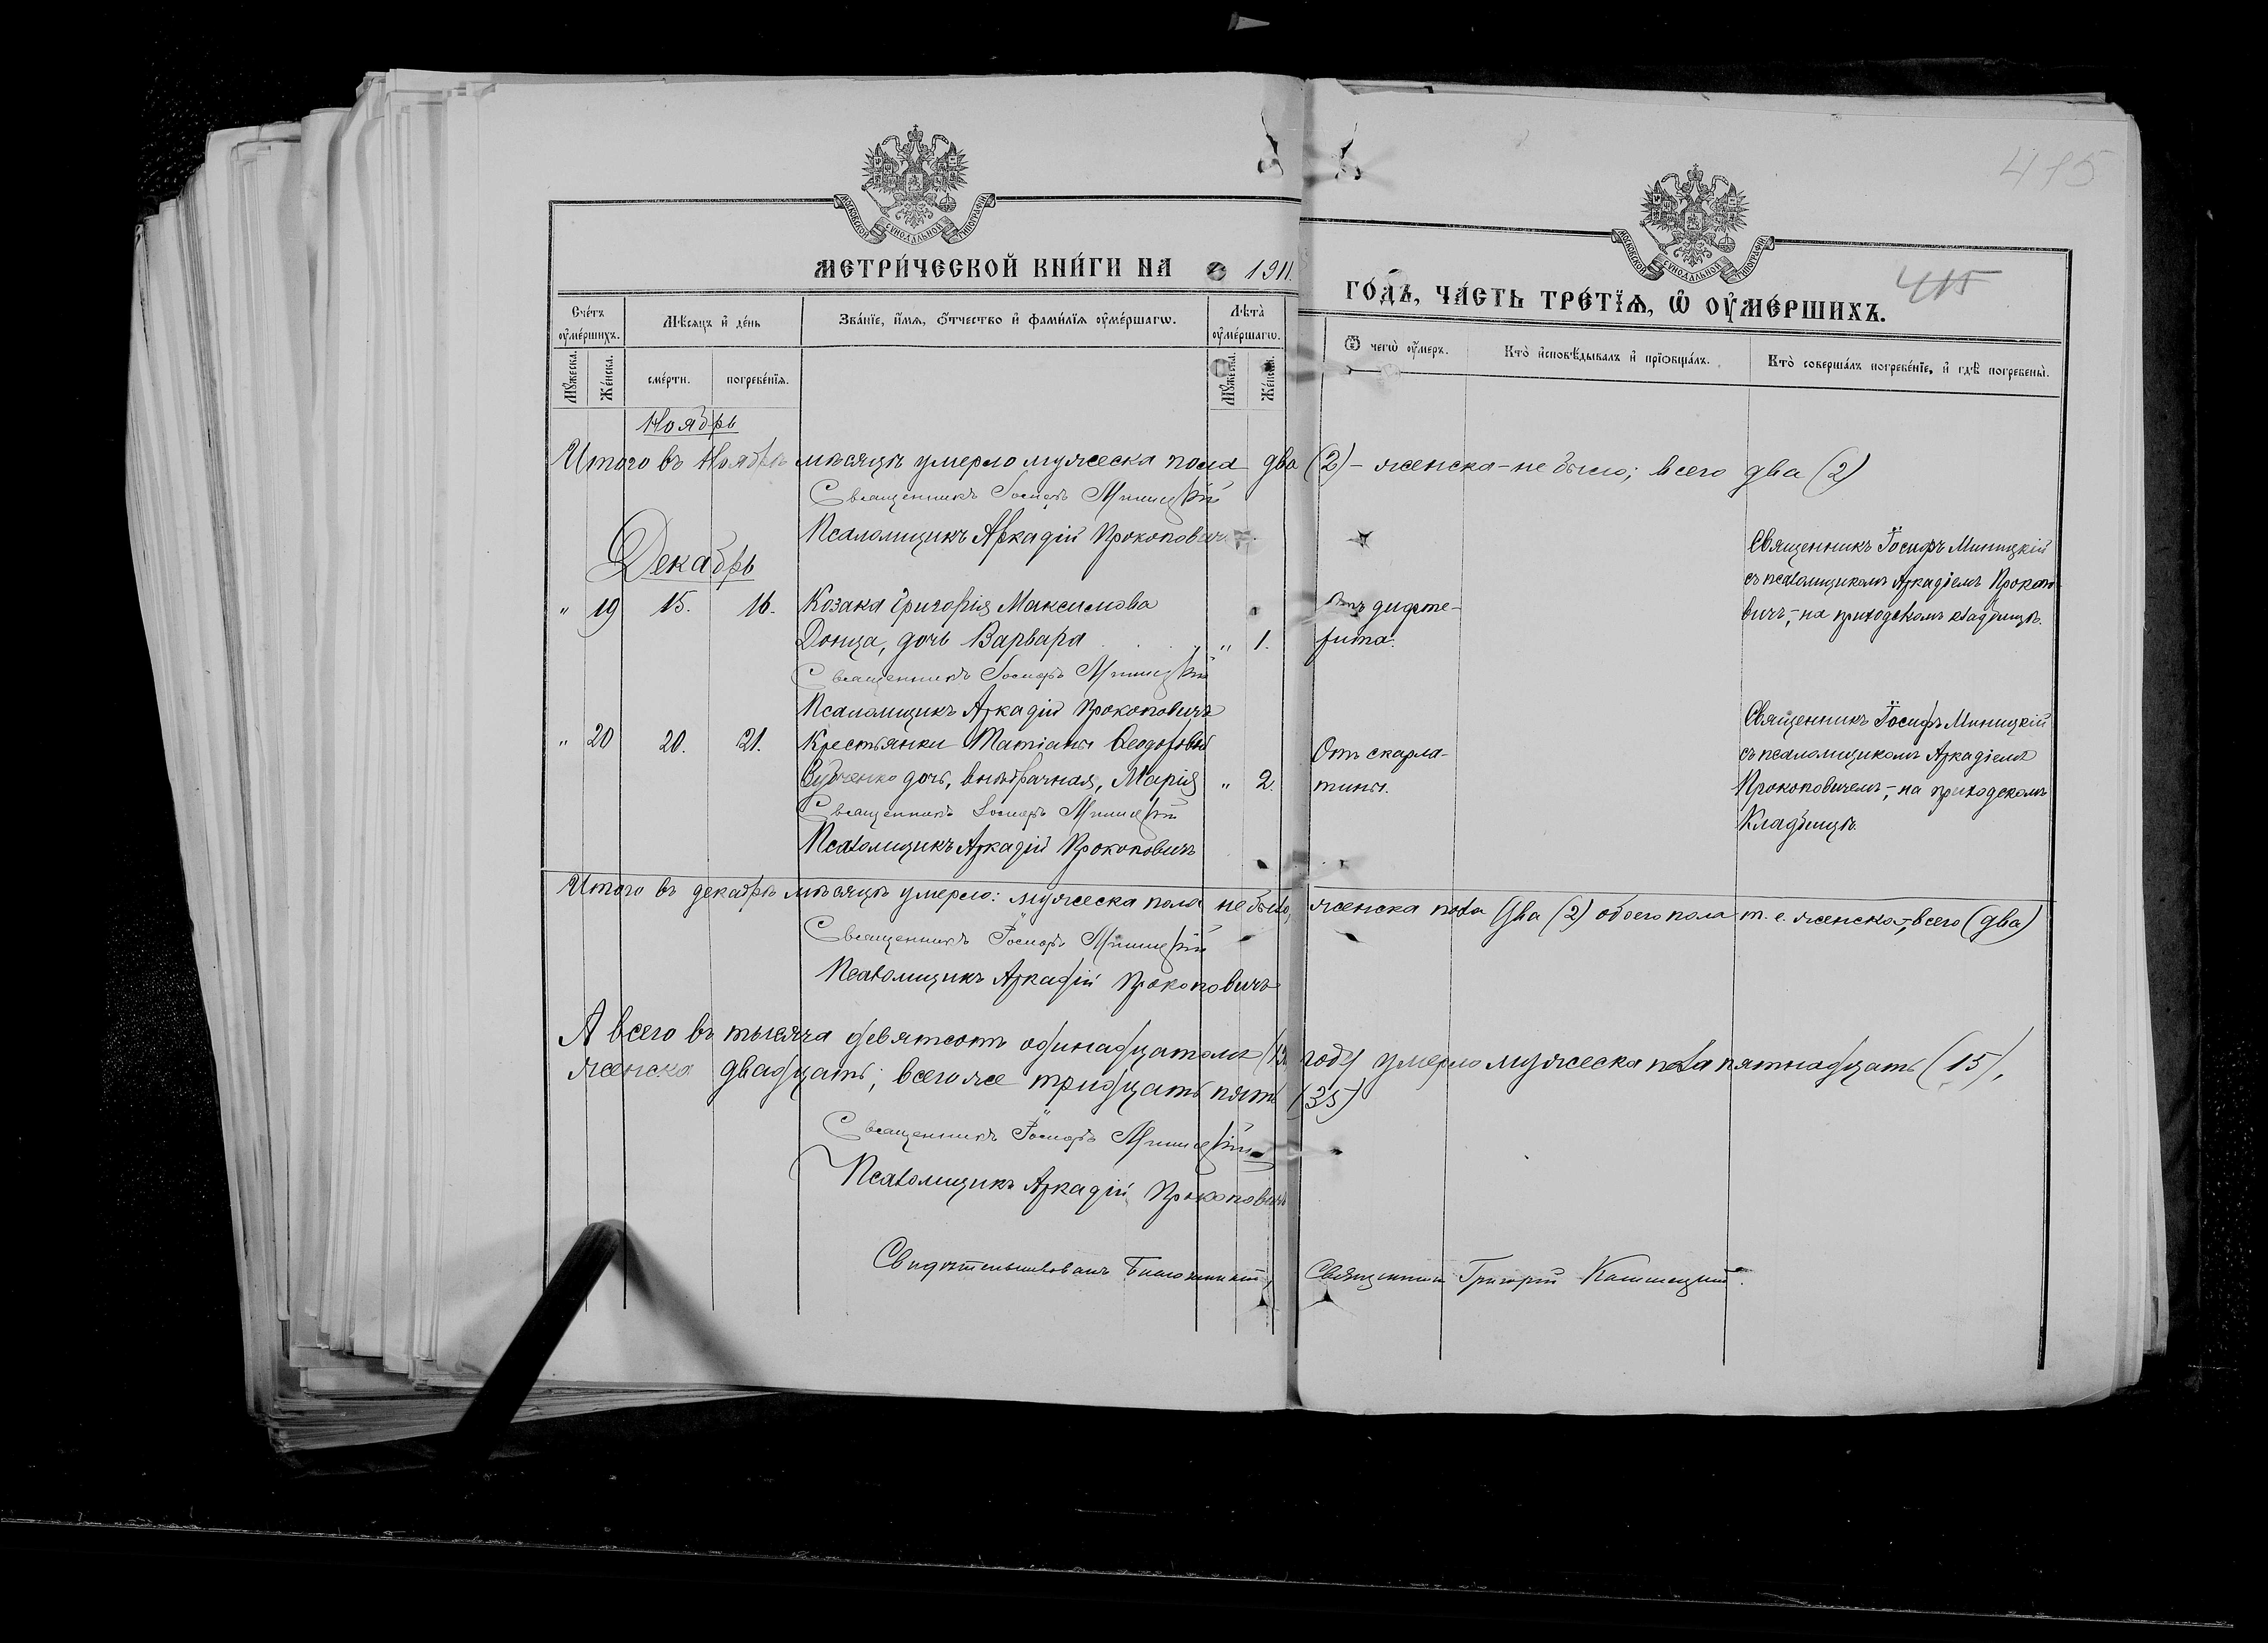 415
МОСКОВСКОЙ СѴНОДАЛЬНОЙ ТИПОГРАФІИ
МОСКОВСКОЙ СѴНОДАЛЬНОЙ ТИПОГРАФІИ
МЕТРИ́ЧЕСКОЙ КНИ́ГИ НА 1911.
ГО́ДЪ, ЧА́СТЬ ТРЕ́ТІѦ, Ѡ҆ ОУ҆МЕ́РШИХЪ.
415
Сче́тъ оу҆ме́ршихъ.
Мѣ́сѧцъ и҆ де́нь
Зва́нїе, и҆́мѧ, ѻ҆́тчество и҆ фами́лїѧ оу҆ме́ршагѡ.
Лѣта̀ оу҆ме́ршагѡ.
Ѿ чегѡ̀ оу҆́меръ.
Кто̀ и҆сповѣ́дывалъ и҆ прїѡбща́лъ.
Кто̀ соверша́лъ погребе́нїе, и҆ гдѣ̀ погребены̀.
Мꙋ́жеска. Же́нска. сме́рти. погребе́нїѧ. Мꙋ́жеска. Же́нска.
Ноябрь
Итого въ Ноябрѣ мѣсяцѣ умерло мужеска пола два (2) - женска - не было; всего два (2)
Священникъ Іосифъ Миницкій
Псаломщикъ Аркадій Прокоповичъ
Декабрь
" 19 15. 16. Козака Григорія Максимова
Донца, дочь Варвара " 1.
Отъ дифте-
рита.
Священникъ Іосифъ Миницкій
съ псаломщикомъ Аркадіемъ Прокопо-
вичъ,- на приходскомъ кладбищѣ.
Священникъ Іосифъ Миницкій
Псаломщикъ Аркадій Прокоповичъ
" 20 20. 21. Крестьянки Татіаны Ѳеодоровой
дочь, внѣбрачная, Марія " 2.
Отъ скарла-
тины.
Священникъ Іосифъ Миницкій
съ псаломщикомъ Аркадіемъ
Прокоповичемъ,- на приходскомъ
Кладбищѣ.
Священникъ Іосифъ Миницкій
Псаломщикъ Аркадій Прокоповичъ
Итого въ декабрѣ мѣсяцѣ умерло: мужеска пола не было, женска пола два (2) обоего пола т. е. женска-, всего (два)
Священникъ Іосифъ Миницкій
Псаломщикъ Аркадій Прокоповичъ
А всего въ тысяча девятсотъ одинадцатомъ году умерло мужеска пола пятнадцать (15),
женска двадцать; всего же тридцать пять (35)
Священникъ Іосифъ Миницкій
Псаломщикъ Аркадій Прокоповичъ
Свидѣтельствовалъ Благочинный, Священникъ Григорій